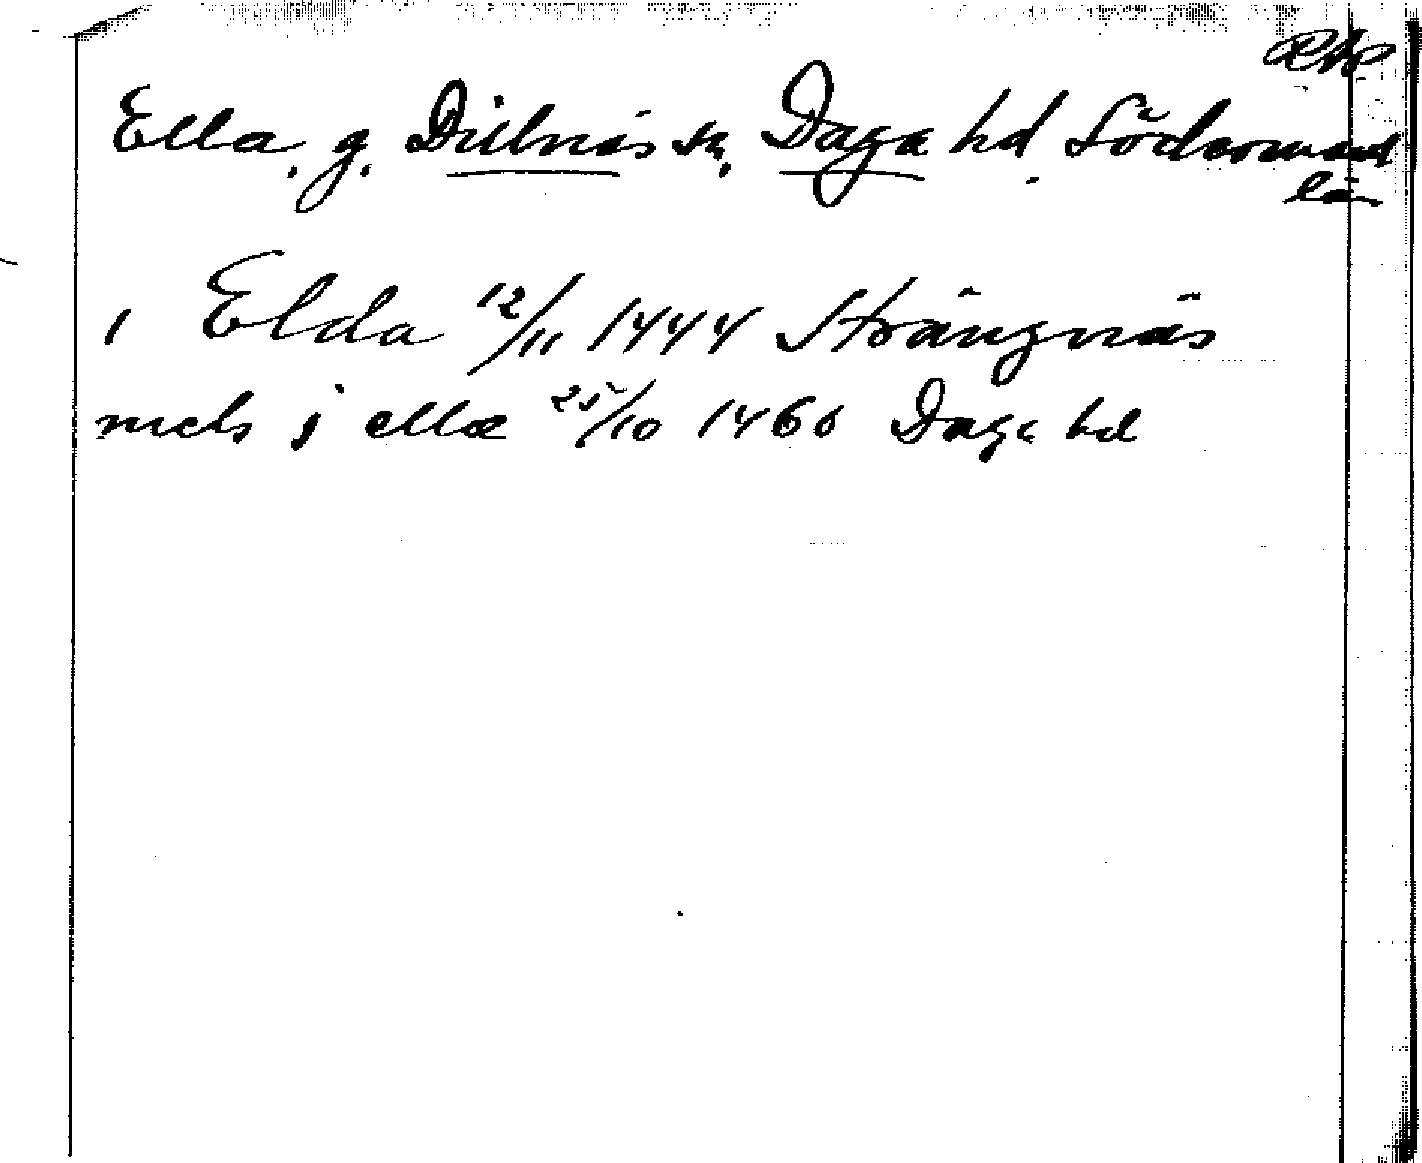 Ella, g. Dillnäs sn, Daga hd. Södermanl
län
i Elda 12/11 1444 Strängnäs
niels j ellæ 25/10 1460 Daga hd